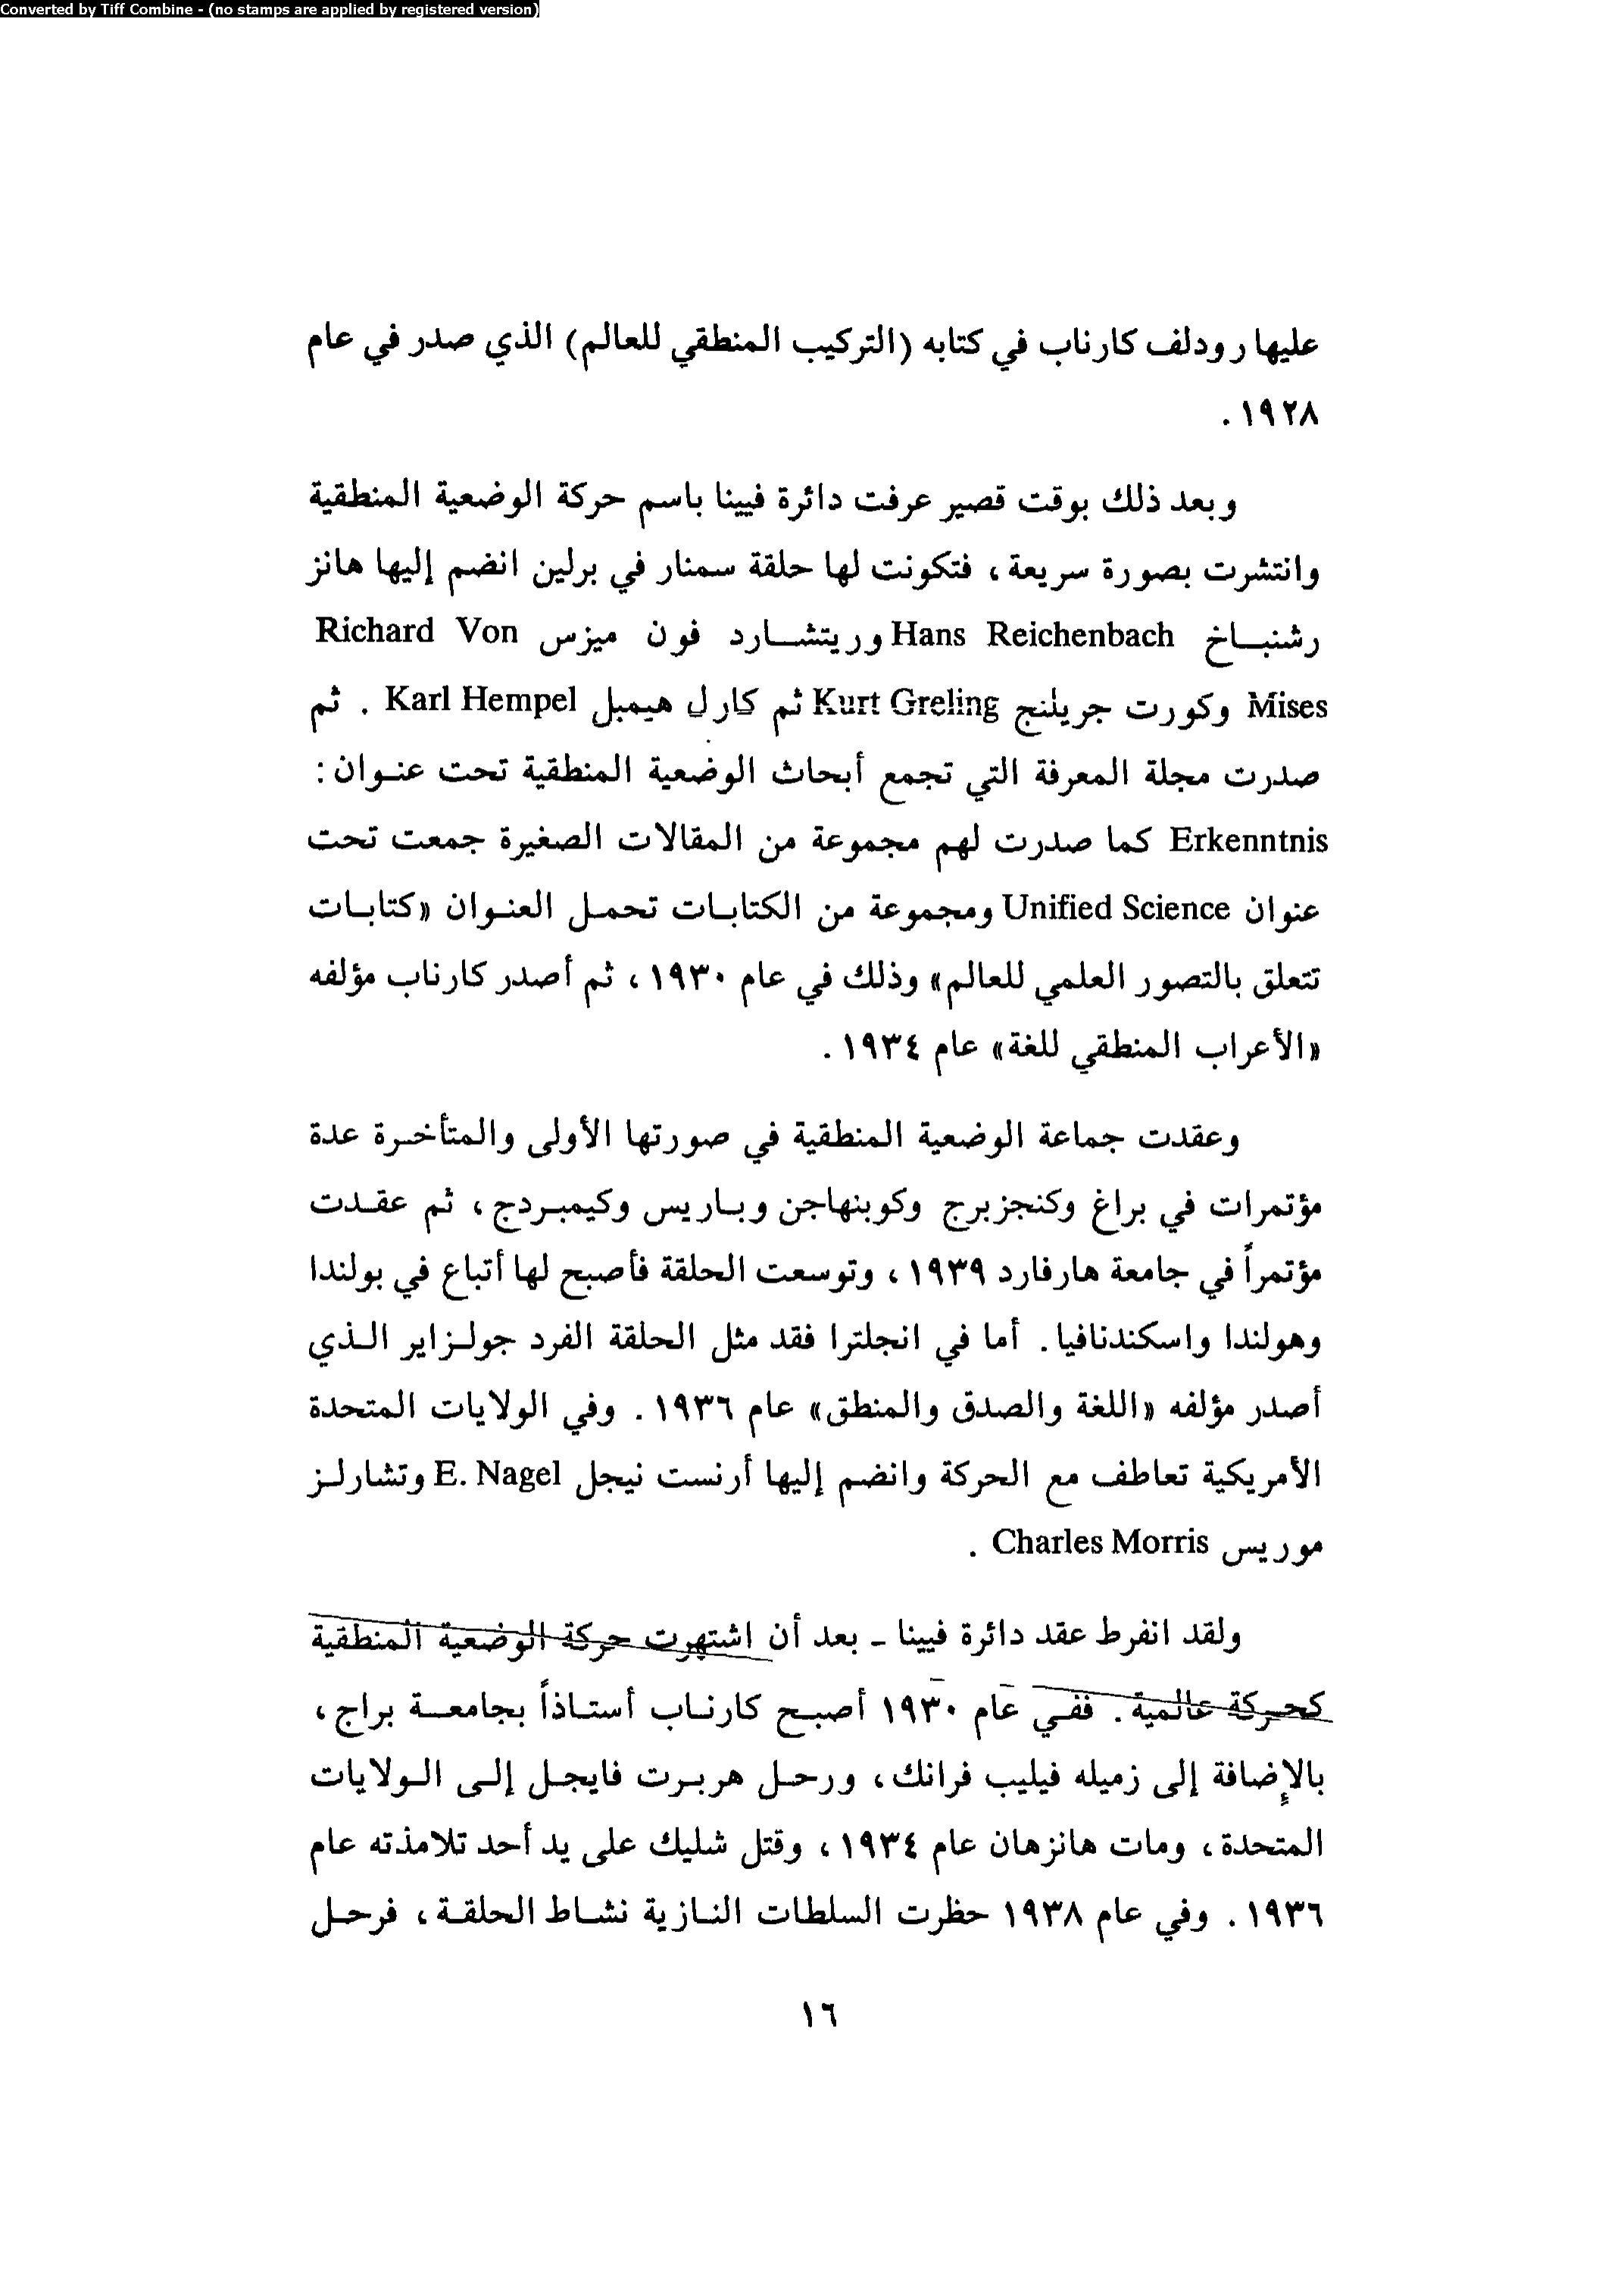 Converted by Tiff Combine - (no stamps are applied by registered version)
عليها رودلف كارناب في كتابه (التركيب المنطقي للعالم) الذي صدر في عام
١٩٢٨ .
وبعد ذلك بوقت قصير عرفت دائرة فيينا باسم حركة الوضعية المنطقية
وانتشرت بصورة سريعة ، فتكونت لها حلقة سمنار في برلين انضم إليها هانز
رشنباخ Hans Reichenbach وريتشارد فون ميزس Richard Von
Mises وكورت جريلنج Kurt Greling ثم كارل هيمبل Karl Hempel . ثم
صدرت مجلة المعرفة التي تجمع أبحاث الوضعية المنطقية تحت عنوان :
Erkenntnis كما صدرت لهم مجموعة من المقالات الصغيرة جمعت تحت
عنوان Unified Science ومجموعة من الكتابات تحمل العنوان «كتابات
تتعلق بالتصور العلمي للعالم» وذلك في عام ١٩٣٠ ، ثم أصدر كارناب مؤلفه
«الأعراب المنطقي للغة» عام ١٩٣٤ .
وعقدت جماعة الوضعية المنطقية في صورتها الأولى والمتأخرة عدة
مؤتمرات في براغ وكنجزبرج وكوبنهاجن وباريس وكيمبردج ، ثم عقدت
مؤتمراً في جامعة هارفارد ١٩٣٩ ، وتوسعت الحلقة فأصبح لها أتباع في بولندا
وهولندا واسكندنافيا . أما في انجلترا فقد مثل الحلقة الفرد جولزاير الذي
أصدر مؤلفه «اللغة والصدق والمنطق» عام ١٩٣٦ . وفي الولايات المتحدة
الأمريكية تعاطف مع الحركة وانضم إليها أرنست نيجل E. Nagel وتشارلز
موريس Charles Morris .
ولقد انفرط عقد دائرة فيينا ـ بعد أن اشتهرت حركة الوضعية المنطقية
كحركة عالمية . ففي عام ١٩٣٠ أصبح كارناب أستاذاً بجامعة براج ،
بالإضافة إلى زميله فيليب فرانك ، ورحل هربرت فايجل إلى الولايات
المتحدة ، ومات هانزهان عام ١٩٣٤ ، وقتل شليك على يد أحد تلامذته عام
١٩٣٦ . وفي عام ١٩٣٨ حظرت السلطات النازية نشاط الحلقة ، فرحل
١٦